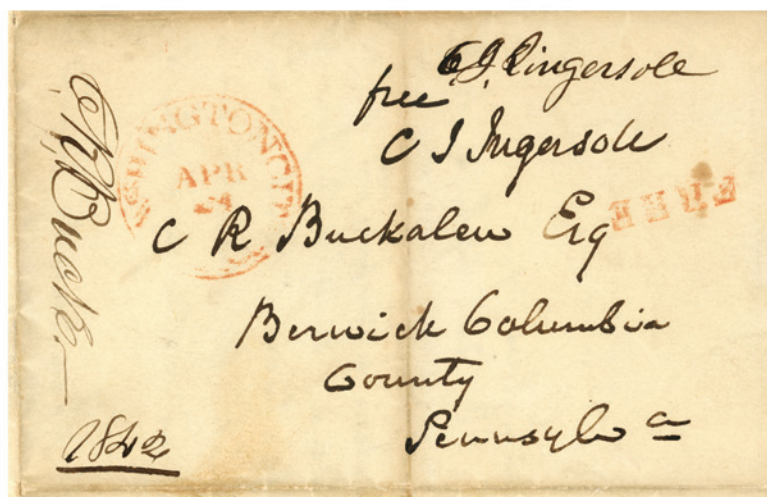 C J Ingersole
free
C J Ingersole
WASHINGTON CIT
APR
24
FREE
C R Buckalew Esq
Berwick Columbia
County
Pennsylva
C R Buck
1842